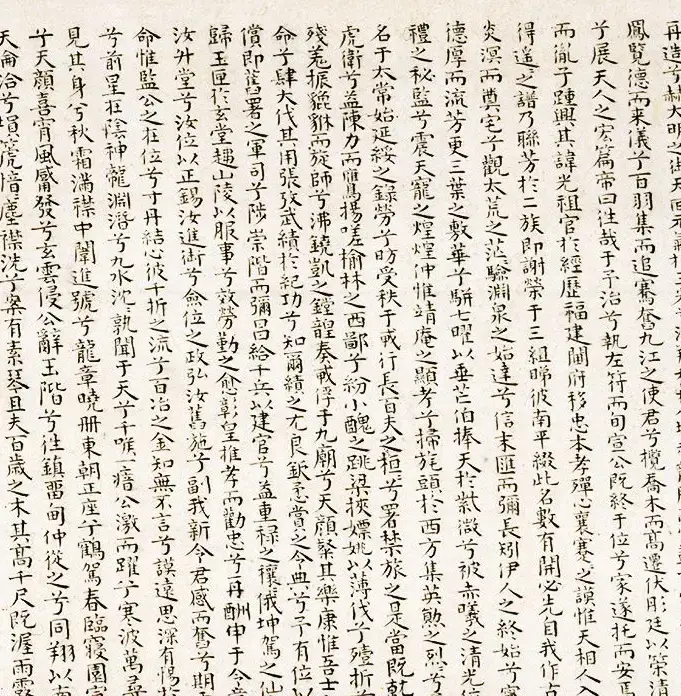 再造兮赫大明之御天
鳳覽德而來儀兮百羽集而追騫奮九江之使君兮攬喬木而高遷伏彤廷以策清
兮展天人之宏篇帝曰往哉于予治兮執左符而旬宣公既終于位兮家遂托而安
而胤子踵興其諱光祖官於經歷福建閫府移忠本孝殫心襄蹇之謨惟天相人
得遙之譜乃聯芳於二族即謝榮于三組睇彼南平綴此名數有開必先自我作古
炎溟而奠宅兮觀太荒之茫驗淵泉之始達兮信末匯而彌長矧伊人之終始兮
德厚而流芳更三葉之敷華兮駢七曜以垂芒伯捧天於紫微兮被赤曦之清光
禮之秘監兮震天寵之煌煌仲惟靖庵之顯考兮掃旄頭於西方集英勲之烈兮
名于太常始延綏之錄勞兮昉受秩于戎行長百夫之桓兮署禁旅之是當既
虎衛兮益陳力而鷹揚嗟榆林之西鄙兮紛小醜之跳梁挾嫖姚以薄伐兮殪
殘羗振貔貅而旋師兮沸鐃凱之鏜鍠奏戎俘于九廟兮天顏粲其樂康惟吾士
命兮肆大代其用張發武績於紀功兮知爾績之尤良欽懋賞之令典兮予有位以
償即舊署之軍司兮陟崇階而彌昌給千兵以建官兮益重祿之穰俄坤駕之仙
歸玉匣於玄堂趨山陵以服事兮效勞勤之愈彰皇推孝而勸忠兮再酬申于令
汝升堂兮汝位以正錫汝進街兮僉位之政弘汝舊施兮副我新令君感而奮兮期
命惟監公之在位兮寸丹結心彼千折之流兮百冶之金知無不言兮謨遠思深有惕
兮前星在陰神龍淵潛兮九水沈沈孰聞于天兮千唯一瘖公激而躍兮寒波萬尋
見其身兮秋霜滿襟中闈進號兮龍章曉册東朝正座兮鶴駕春臨寢園
兮天顏喜霄風膚發兮玄雲侵公辭玉階兮往鎮留甸仲從之兮同翔以南
天倫洽兮塤箎愔塵襟洗兮案有素琴且夫百歲之木其髙千尺既渥雨露